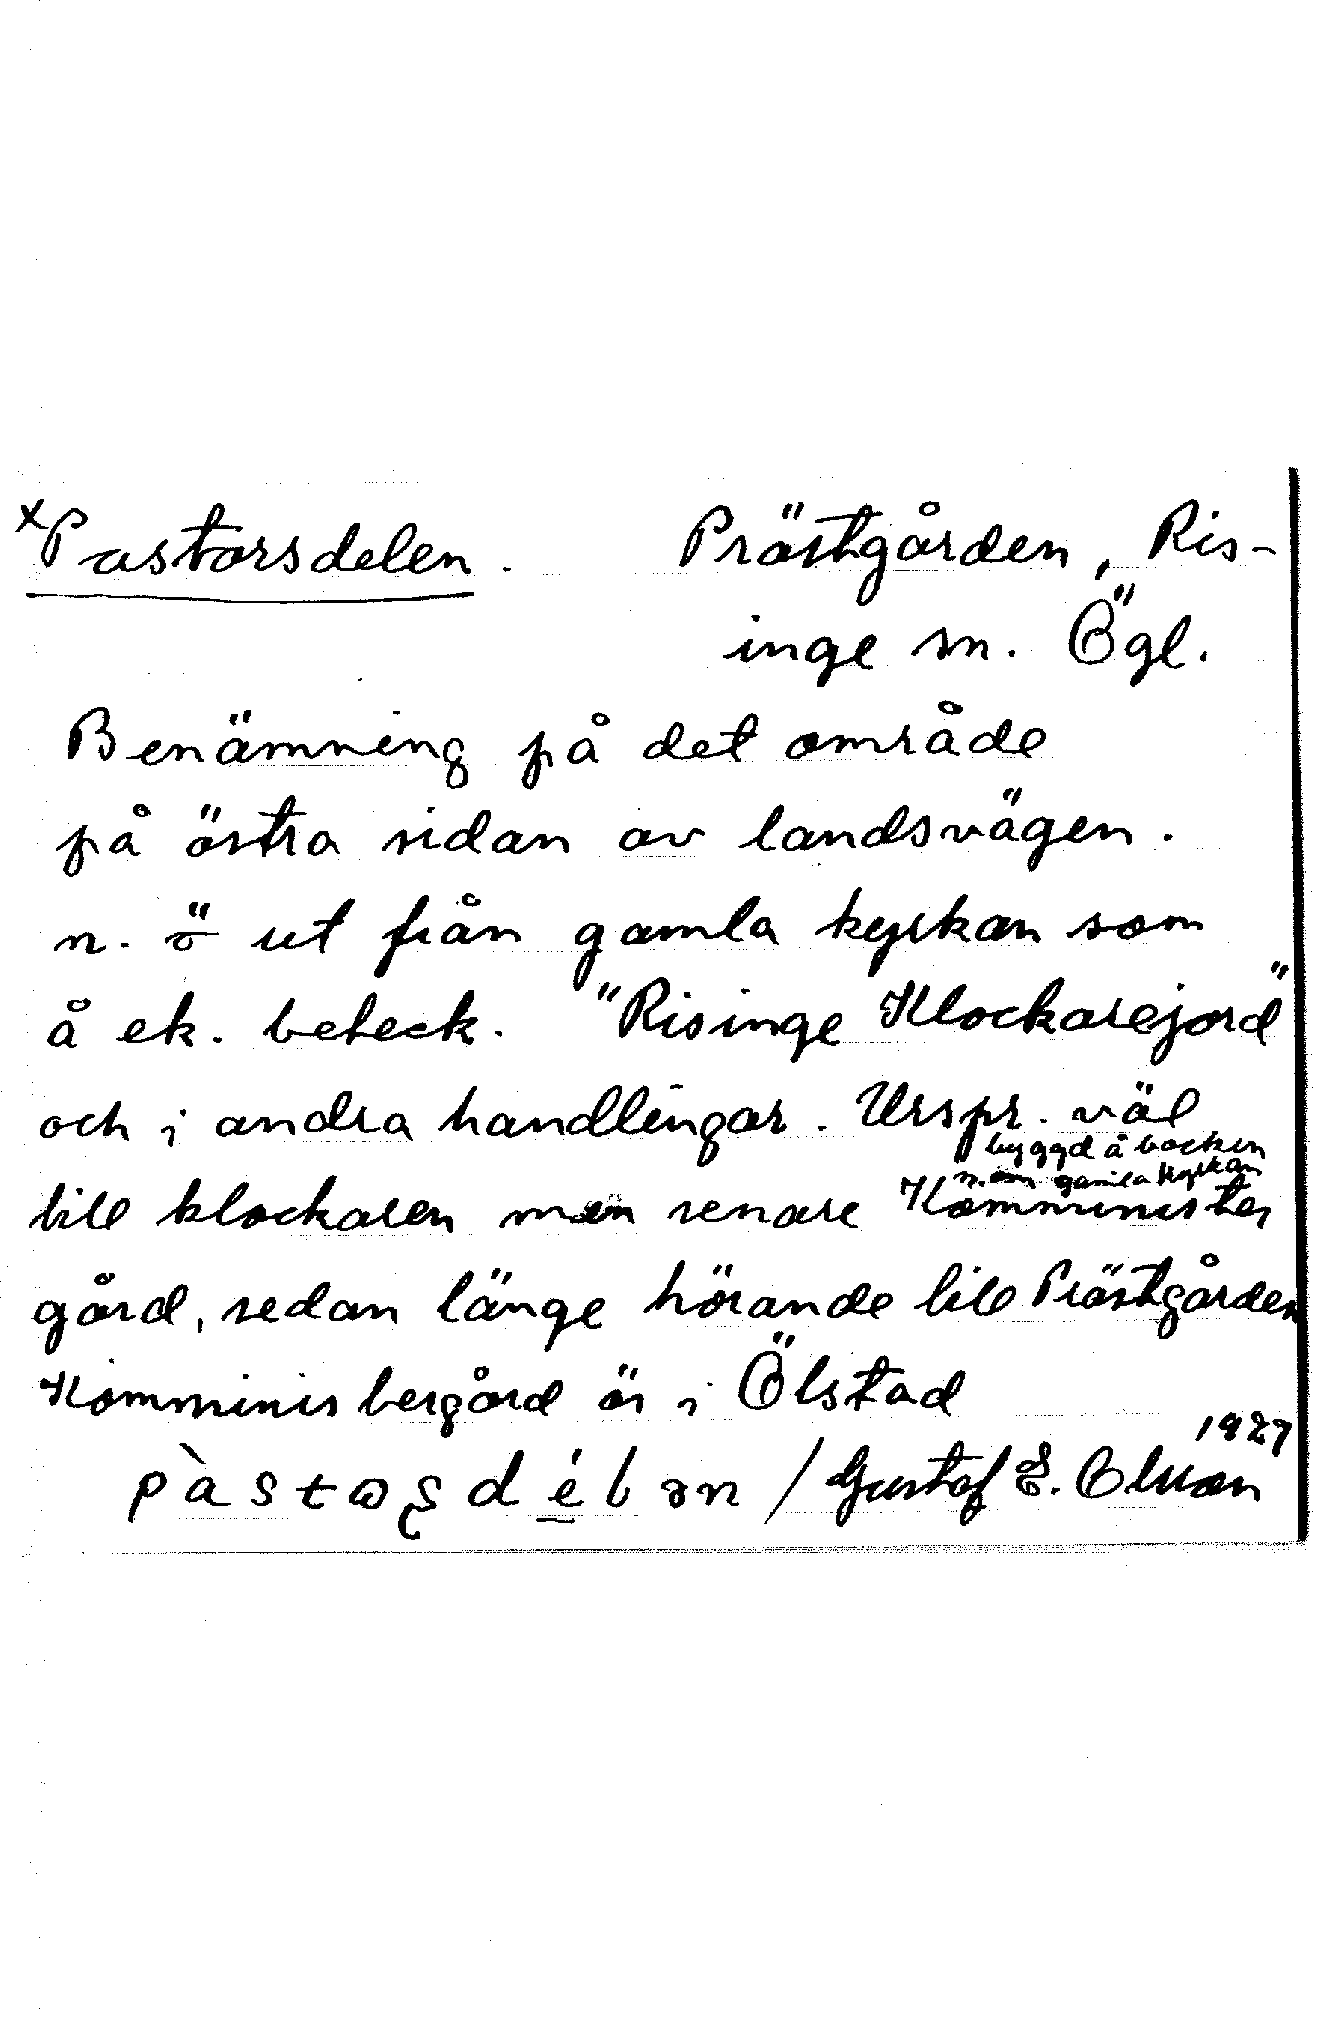 xPastorsdelen. Prästgården, Ris-
inge sn. Ögl.
Benämning på det område
på östra sidan av landsvägen.
n. ö ut från gamla kyrkan som
å ek. beteck. "Risinge Klockarejord"
och i andra handlingar. Urspr. väl
byggd å backen
n. om gamla kyrkan
till klockaren men senare Komminister
gård, sedan länge hörande till Prästgården
Komministergård är i Ölstad
1927
pàstoʂdélən / Gustaf E. Olsson